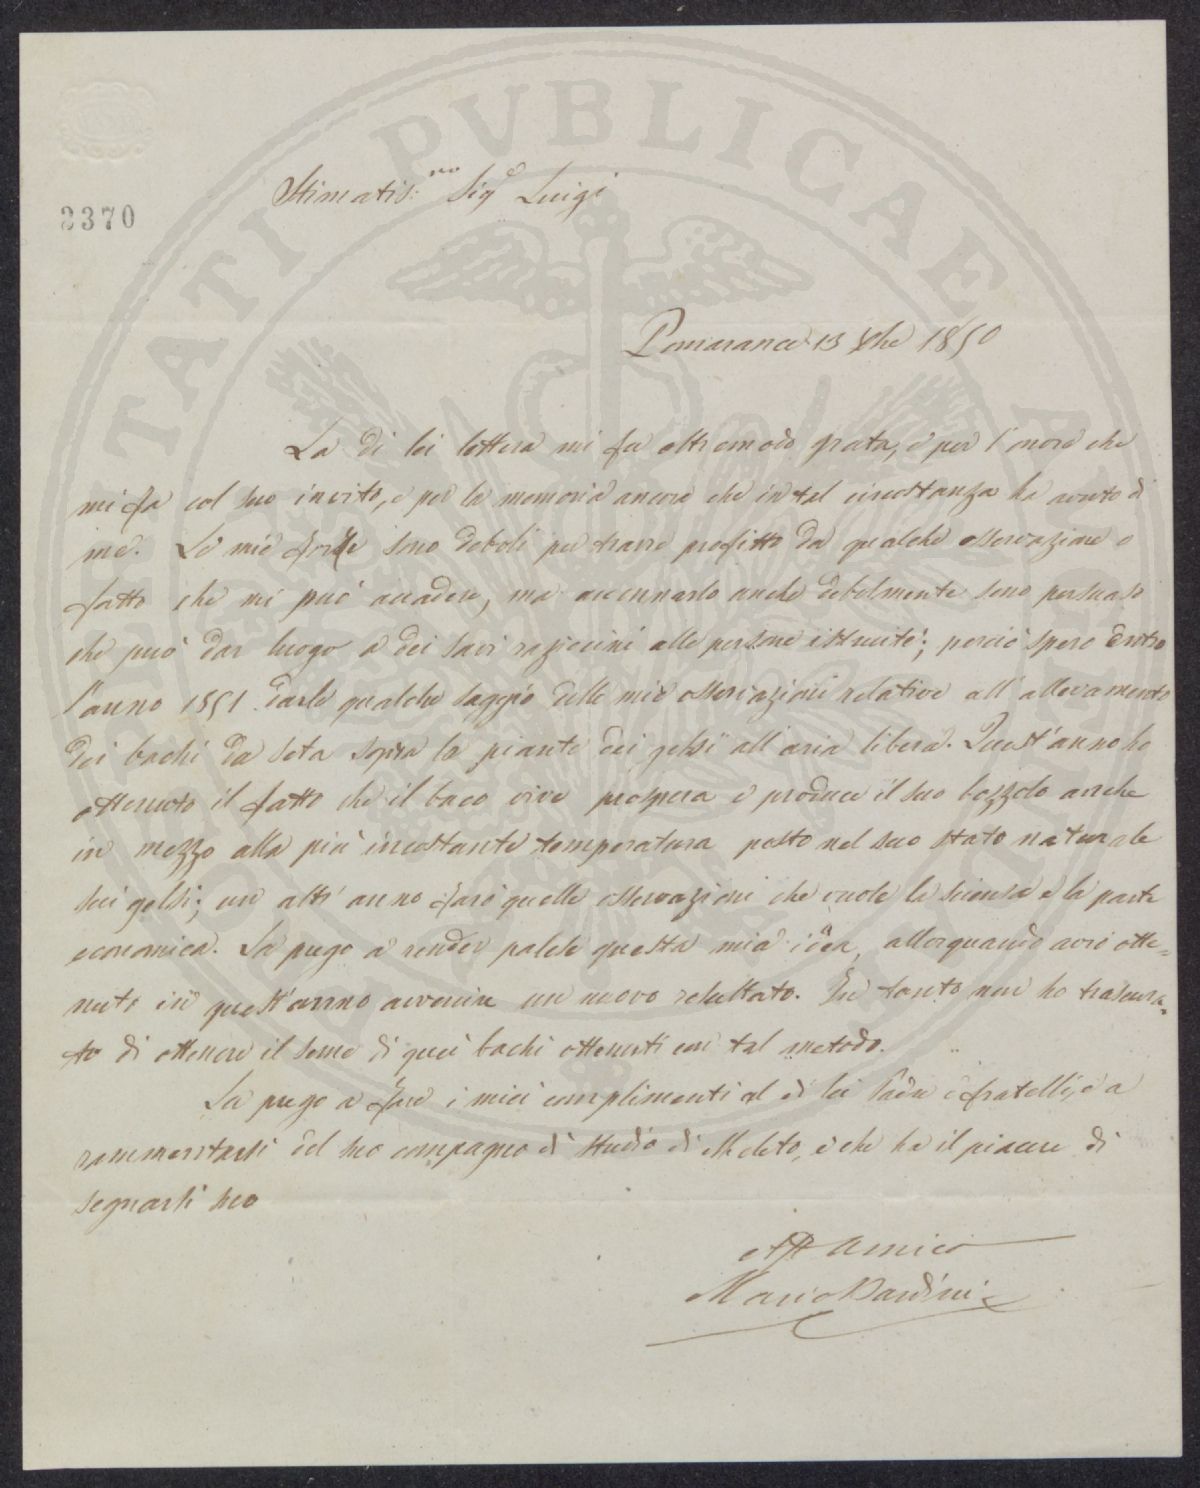 PROSPERITATI PVBLICAE AVGENDAE
3370
Stimatis:mo Sigr Luigi
Pomarance 13 Xbre 1850
La di lei lettera mi fu oltremodo grata, e per l'onore che
mi fa col suo invito, e per la memoria ancora che in tal circostanza ha avuto di
me. Le mie forze sono deboli per trarre profitto da qualche osservazione o
fatto che mi può accadere, ma accennarlo anche debolmente sono persuaso
che può dar luogo a dei savi raziocini alle persone istruite; perciò spero dentro
l'anno 1851 darle qualche saggio delle mie osservazioni relative all'allevamento
dei bachi da seta sopra le piante dei gelsi all'aria libera. Quest'anno ho
ottenuto il fatto che il baco vive prospera e produce il suo bozzolo anche
in mezzo alla più incostante temperatura posto nel suo stato naturale
sui gelsi; un altr'anno farò quelle osservazioni che vuole la scienza e la parte
economica. La prego a render palese questa mia idea, allorquando avrò otte=
nuto in quest'anno avvenire un nuovo resultato. In tanto non ho trascura=
to di ottenere il seme di quei bachi ottenuti con tal metodo.
La prego a fare i miei complimenti al di lei Padre e fratelli, e a
rammentarsi del suo compagno di studio di Meleto, e che ha il piacere di
segnarsi suo
Aff Amico
Mario Bardini